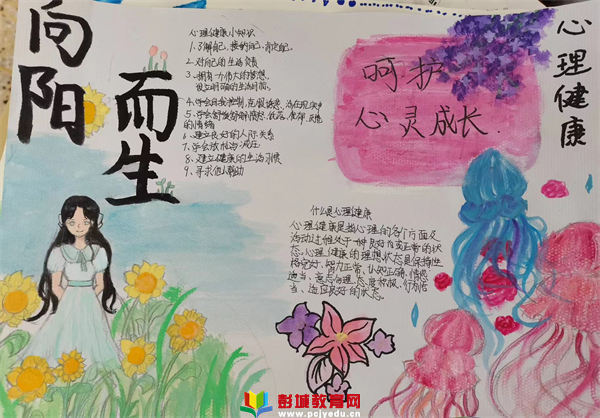 向阳
而生
心理健康小知识
1、了解自己、接纳自己、肯定自己
2、对自己的生活负责
3、拥有一个伟大的梦想，
设立明确的生活目标。
6、建立良好的人际关系
7、学会放松与减压
8、建立健康的生活习惯
9、寻求他人帮助
呵护
心灵成长
心理健康
什么是心理健康
心理健康是指心理的各个方面及
活动过程处于一种良好或正常的状
态。心理健康的理想状态是保持性
格完好、智力正常、认知正确、情感
适当、意志合理、态度积极、行为恰
当、适应良好的状态。
彭城教育网
www.pcjyedu.cn